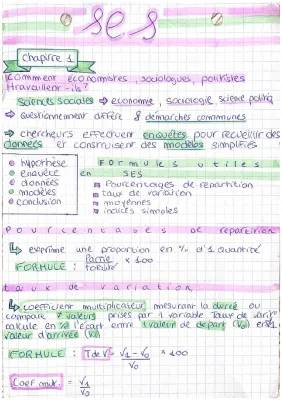 SES
Chapitre 1
Comment économistes, sociologues, politistes
travaillent-ils?
Sciences sociales → économie, sociologie science politiq
→ Questionnement diffère & démarches communes
→ chercheurs effectuent enquêtes pour recueillir des
données et construisent des modèles simplifiés
hypothèse
enquête
données
modèles
conclusion
Formules utiles
en SES
Pourcentages de repartition
taux de variation
moyennes
indices simples
Pourcentages de repartition
↳ exprime une proportion en % d'1 quantité
FORMULE : Partie / totalité × 100
taux de variation
↳ coefficient multiplicateur mesurant la durée ou
compare valeurs prises par 1 variable Taux de varia°
calcule en % l'écart entre 1 valeur de départ (V0) et 1
valeur d'arrivée (V1)
FORMULE : T de V = V1 - V0 / V0 × 100
Coef mult. = V1 / V0